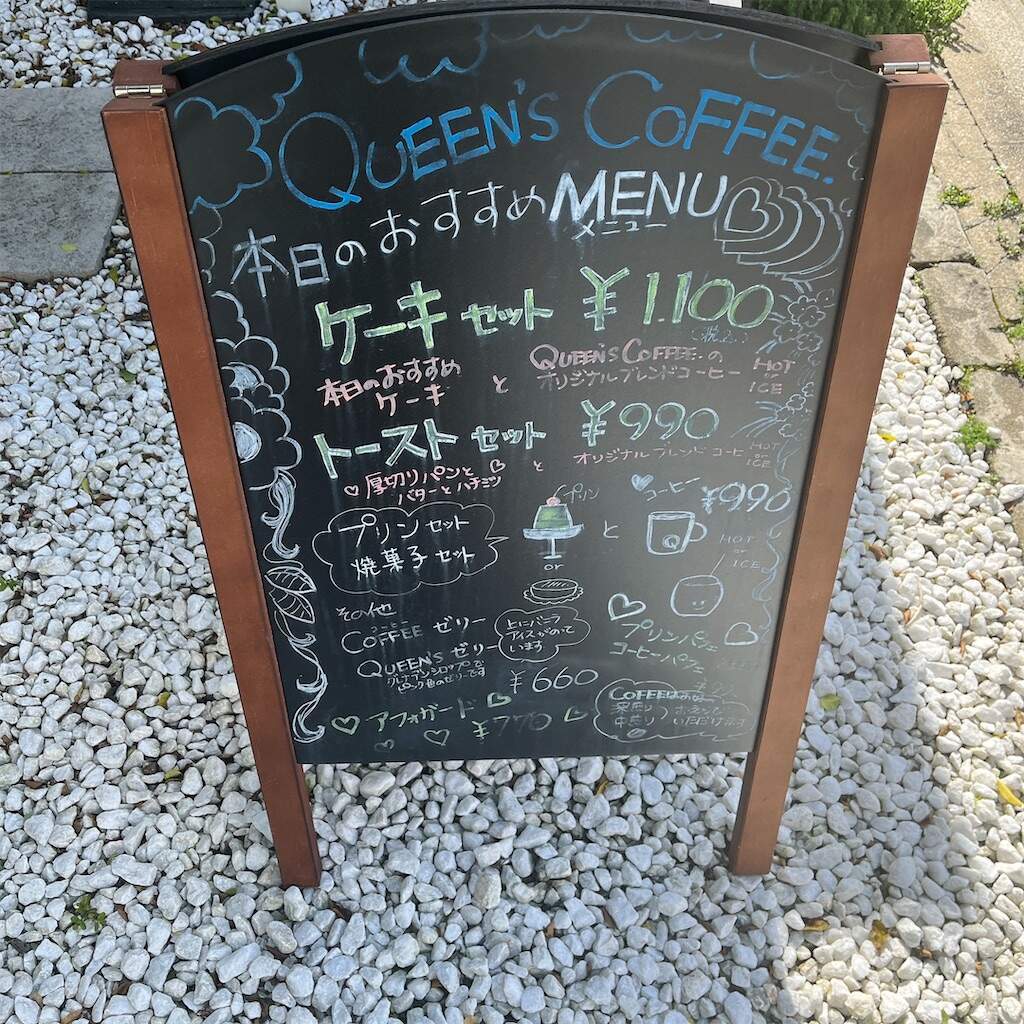 QUEEN'S COFFEE.
本日のおすすめMENU
メニュー
ケーキ セット ¥1.100
本日のおすすめ
ケーキ
と
QUEEN'S COFFEE.の
オリジナルブレンドコーヒー
HOT
or
ICE
トースト セット ¥990
厚切りパンと
バターとハチミツ
と
オリジナルブレンドコーヒー
HOT
or
ICE
プリンセット
焼菓子セット
プリン
or
と
コーヒー
¥990
HOT
or
ICE
その他
コーヒー
COFFEE ゼリー
QUEEN'S ゼリー
グレナデンシロップで
ピンク色のゼリーです
上にバニラ
アイスがのって
います
¥660
プリンパフェ
コーヒーパフェ
アフォガード ¥770
COFFEEは
深煎り
中煎り